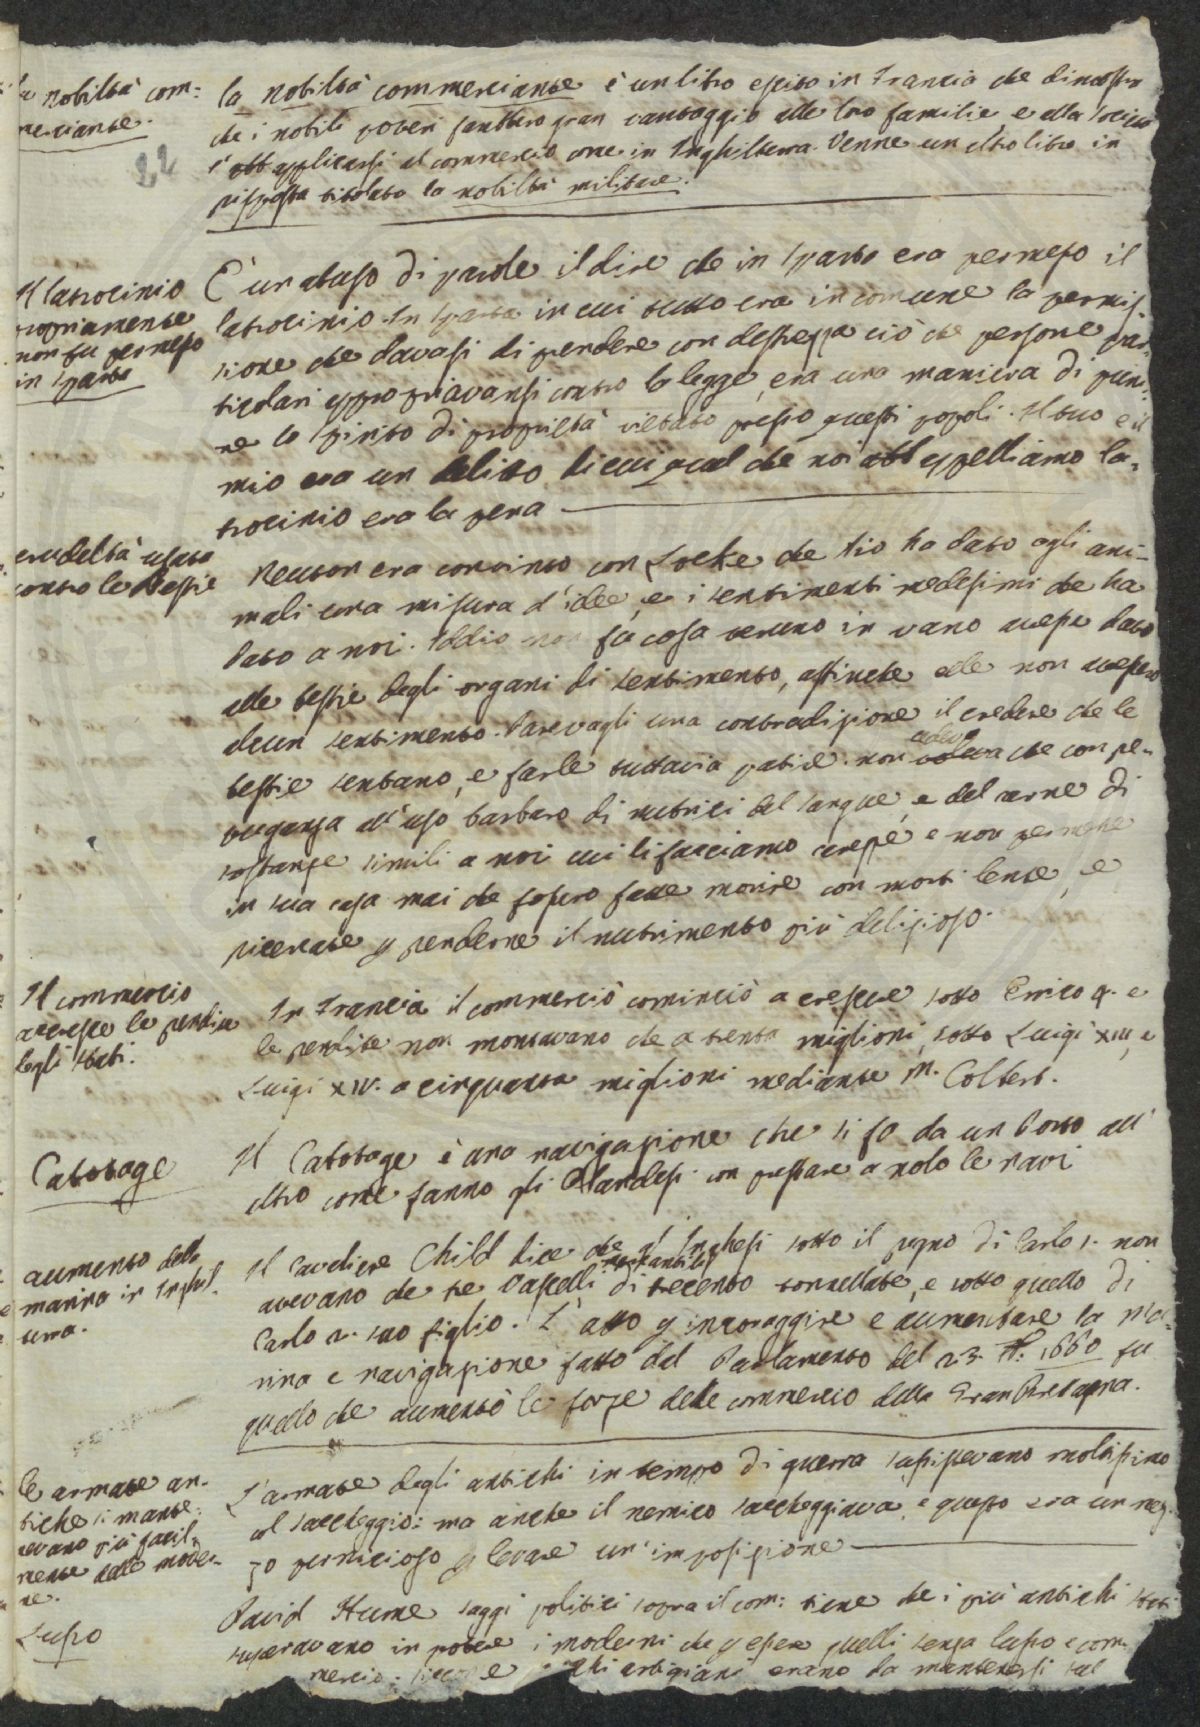 la nobiltà com:
merciante.
22
la nobiltà commerciante è un libro escito in Francia che dimostra
che i nobili poveri farebbero gran vantaggio alle loro famiglie e alla
applicarsi al commercio come in Inghilterra. Venne un altro libro in
risposta titolato la nobiltà militare.
Il latrocinio
propriamente
non fu permesso
in Sparta
E' un abuso di parole il dire che in Sparta era permesso il
latrocinio. In Sparta in cui tutto era in comune la permis-
sione che davasi di prendere con destrezza ciò che persone par-
ticolari appropriavansi contro la legge, era una maniera di puni-
re lo spirito di proprietà vietato presso questi popoli. Il tuo e il
mio era un delitto di cui quel che noi appelliamo la-
trocinio era la pena
crudeltà usata
contro le Bestie
Neuton era convinto con Locke che Dio ha dato agli ani-
mali una misura d'idee, e i sentimenti medesimi che ha
dato a noi. Iddio non fa cosa veruna in vano avesse dato
alle bestie degli organi di sentimento, affinché elle non avessero
alcun sentimento. Parevagli una contradizione il credere che le
bestie sentano, e farle tuttavia patire. non cedeva che con re-
pugnanza all'uso barbaro di nutrirci del sangue, e del carne di
sostanze simili a noi cui li facciamo e non permise
in sua casa mai che fossero fatte morire con morti lente, e
ricercate p renderne il nutrimento più delizioso.
Il commercio
accresce le rendite
degli stati.
In Francia il commerciò cominciò a crescere sotto Errico 4. e
le rendite non montavano che a trenta miglioni, sotto Luigi XIII, e
Luigi XIV. a cinquanta miglioni mediante M. Colbert.
Cabotage
Il Cabotage è una navigazione che si fa da un Porto all'
altro come fanno gli Olandesi con prestare a nolo le navi
aumento della
marina in Inghil-
terra.
Il Cavaliere Child dice che gl'Inglesi sotto il regno di Carlo 1. non
mercantili
avevano che tre Vascelli di trecento tonnellate, e sotto quello di
Carlo 2. suo figlio. L'atto p incoraggire e aumentare la ma-
rina e navigazione fatto dal Parlamento del 23. 1660 fu
quello che aumentò le forze delle commercio della Gran Bretagna.
le armate an-
tiche si mante:
nevano più facil-
mente delle moder-
ne.
L'armate degli antichi in tempo di guerra sussistevano moltissimo
col saccheggio: ma anche il nemico saccheggiava, e questo era un mez-
zo pernicioso p levare un'imposizione
Lusso
David Hume saggi politici sopra il com: tiene che i più antichi stati
superavano in potere i moderni che p essere quelli senza lusso e com-
mercio: artigiani erano da mantenersi sul